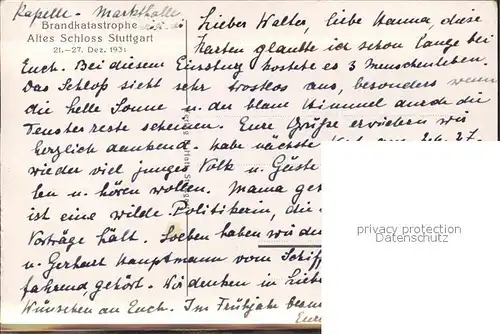 Kapelle - Markthalle
Brandkatastrophe
Altes Schloss Stuttgart
21.-27. Dez. 1931
Lieber Walter, liebe Hanna, diese
Karten glaubte ich schon lange bei
Euch. Bei diesem Einsturz kostete es 3 Menschenleben.
Das Schloß sieht sehr trostlos aus, besonders wenn
die helle Sonne u. der blaue Himmel durch die
Fensterreste scheinen. Eure Grüße erwidern wir
herzlich dankend. Habe nächste
wieder viel junges Volk u. Gäste
len u. hören wollen. Mama
ist eine wilde Politikerin, die
Vorträge hält. Soeben haben wir den
u. Gerhart Hauptmann vom Schiff
fahrend gehört. Wir denken in Liebe
Wünschen an Euch. Im Frühjahr
Eure
privacy protection
Datenschutz